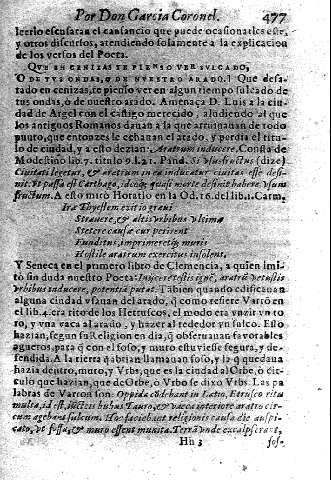 Por Don Garcia Coronel. 477
leerlo escusaran el cansancio que puede ocasionarles este,
y otros discursos, atendiendo solamente a la explicacion
de los versos del Poeta.
QVE EN CENIZAS TE PIENSO VER SVLCADO,
O DE TVS ONDAS, O DE NVESTRO ARADO.] Que desa-
tado en cenizas, te pienso ver en algun tiempo sulcado de
tus ondas, ò de nuestro arado. Amenaça D. Luis a la ciu-
dad de Argel con el castigo merecido, aludiendo al que
los antiguos Romanos dauan a la que arruinauan de todo
punto, que entonces le echauan el arado, y perdia el titu-
lo de ciudad, y a esto dezian, Aratrum inducere. Consta de
Modestino lib. 7. titulo 9. l. 21. Pand. Si vsusfructus (dize)
Ciuitati legetur, & aratrum in ea inducatur ciuitas esse desi-
nit: vt passa est Carthago, ideoq; quasi morte desinit habere vsum
fructum. A esto mirò Horatio en la Od. 16. del lib. 1. Carm.
Iræ Thyestem exitio graui
Strauere, & altis vrbibus vltimæ
Stetere causæ cur perirent
Funditus, imprimeretq; muris
Hostile aratrum exercitus insolent.
Y Seneca en el primero libro de Clemencia, a quien imi-
tò sin duda nuestro Poeta: aratrũ vetustis
vrbibus inducere, potentia putat. Tãbien quando edificauan
alguna ciudad vsauan del arado, q̃ como refiere Varrõ en
el lib. 4. era rito de los Hetruscos, el modo era vnzir vn to
ro, y vna vaca al arado, y hazer al rededor vn sulco. Esto
hazian, segun su Religion en dia, q̃ obseruauan fauorables
agueros, para q̃ con el foso, y muro estuuiese segura, y de-
fendida. A la tierra q̃ abrian llamauan foso, y la q̃ quedaua
hazia dentro, muro, y Vrbs, que es la ciudad al Orbe, ò cir-
culo que hazian, que de Orbe, ò Vrbo se dixo Vrbs. Las pa
labras de Varron son. Oppida cõdebant in Latio, Etrusco ritu
multa, id est, iunctis bubus Tauro, & vacca interiore aratro cir-
cum agebant sulcum. Hoc faciebant religionis causa die auspi-
cato, vt fossa, & muro essent munita. Terra vnde exculpserant,
Hh 3 fos-